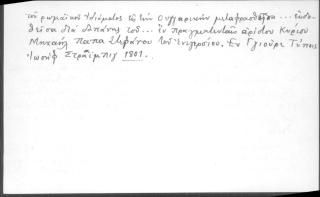 τοῦ ρωμαϊκοῦ ἰδιώματος εἰς τὴν Οὐγγαρικὴν μεταφρασθεῖσα ... ἐκδο-
θεῖσα διὰ δαπάνης τοῦ ... ἐν πραγματευταῖς ἀρίστου Κυρίου
Μιχαὴλ Παπα Στεφάνου τοῦ Ἐν Γιούρε Τύποις
Ἰωσὴφ Στράϊμπιγ 1801.